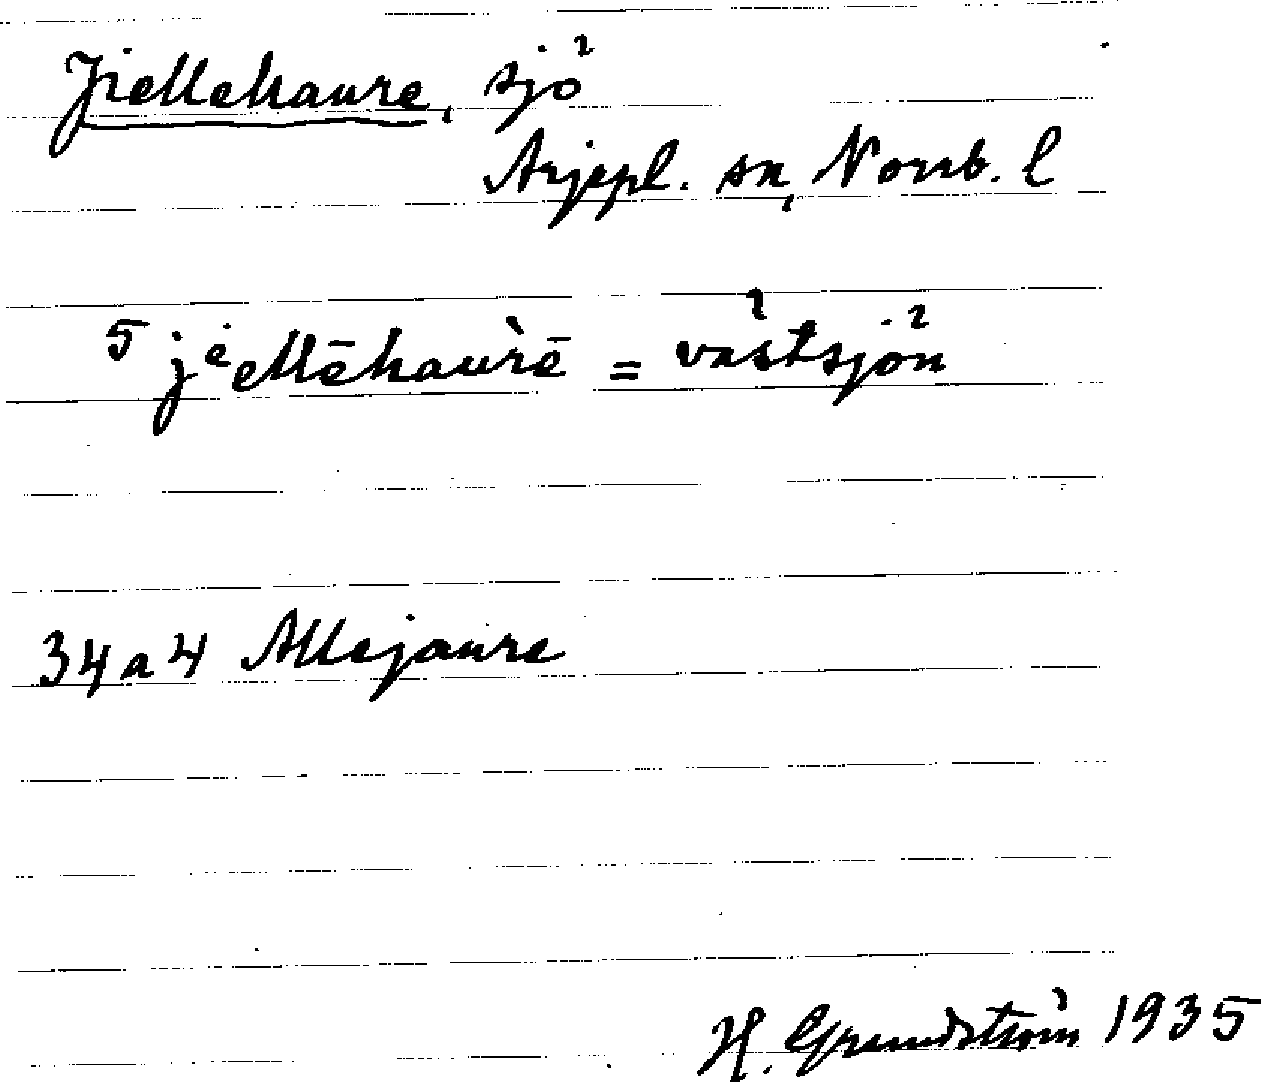 Jiellehaure, sjö
Arjepl. sn, Norrb. l
5 jiellēhaùrē = västsjön
34 a 4 Allejaure
H. Grundström 1935